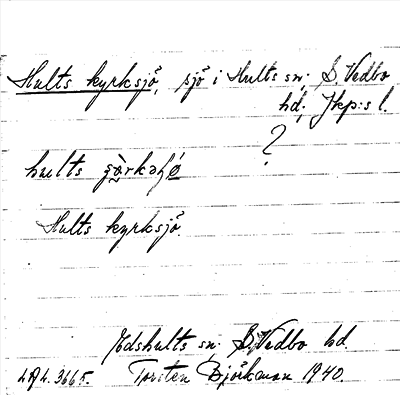 Hults kyrksjö, sjö i Hults sn; S. Vedbo
hd; Jkp:s l.
?
hults
Hults kyrksjö.
Edshults sn; S. Vedbo hd
LAL. 3665. Torsten Björkman 1940.